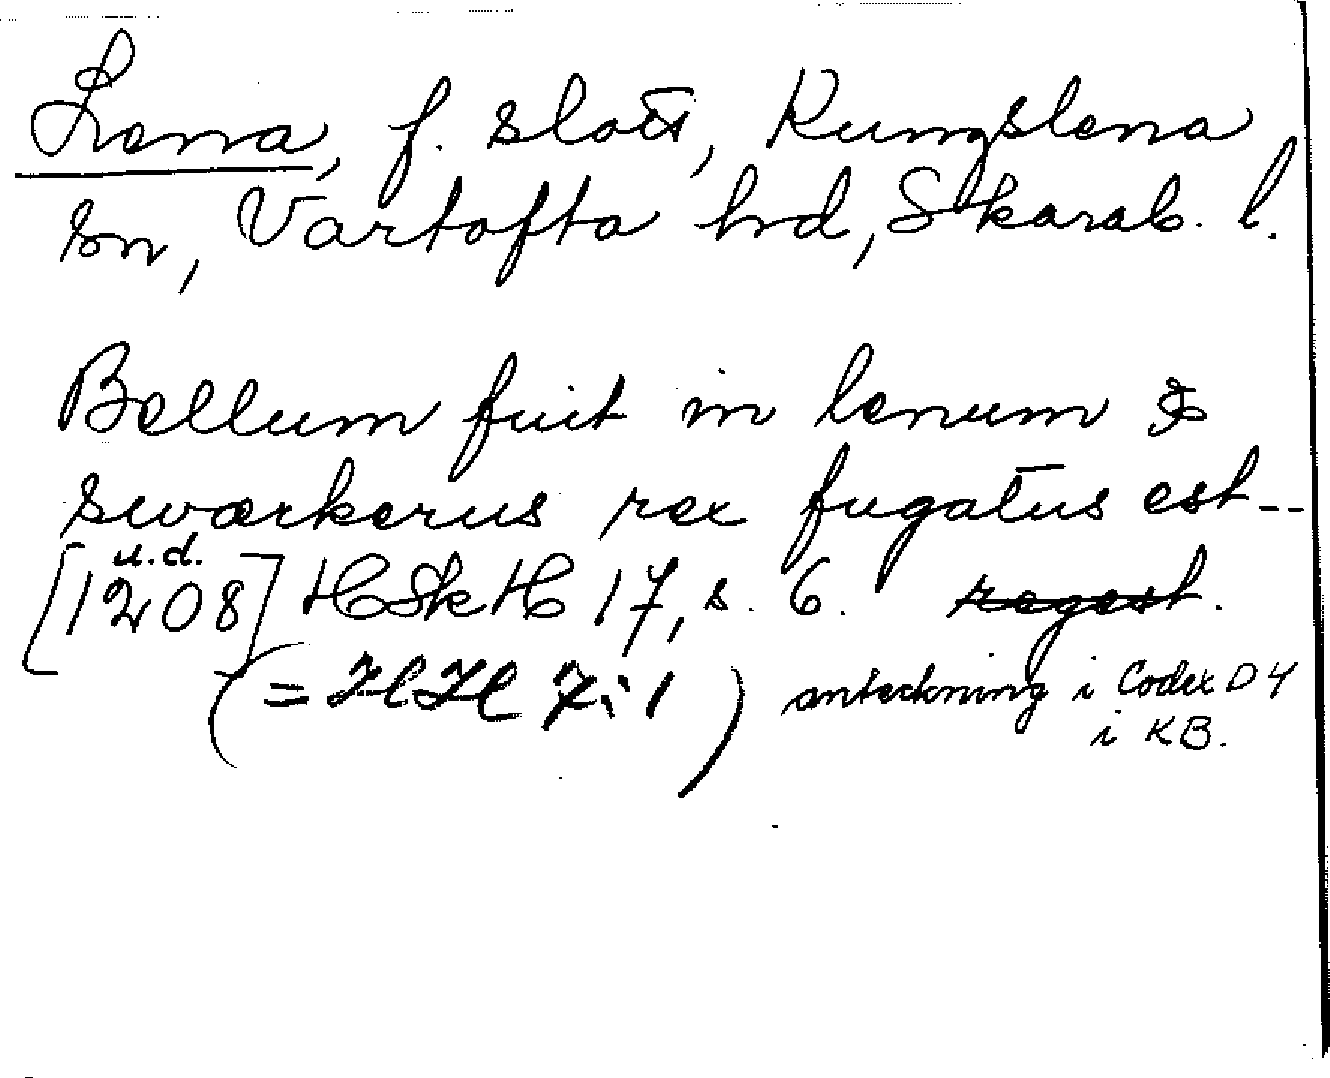 Lena, f. slott, Kungslena
sn, Vartofta hd, Skarab. l.
Bellum fuit in lenum &
swærkerus rex fugatus est --
u.d.
[1208] HSkH 17, s. 6. regest.
(= HH 7:1) anteckning i Codex D 4
i KB.